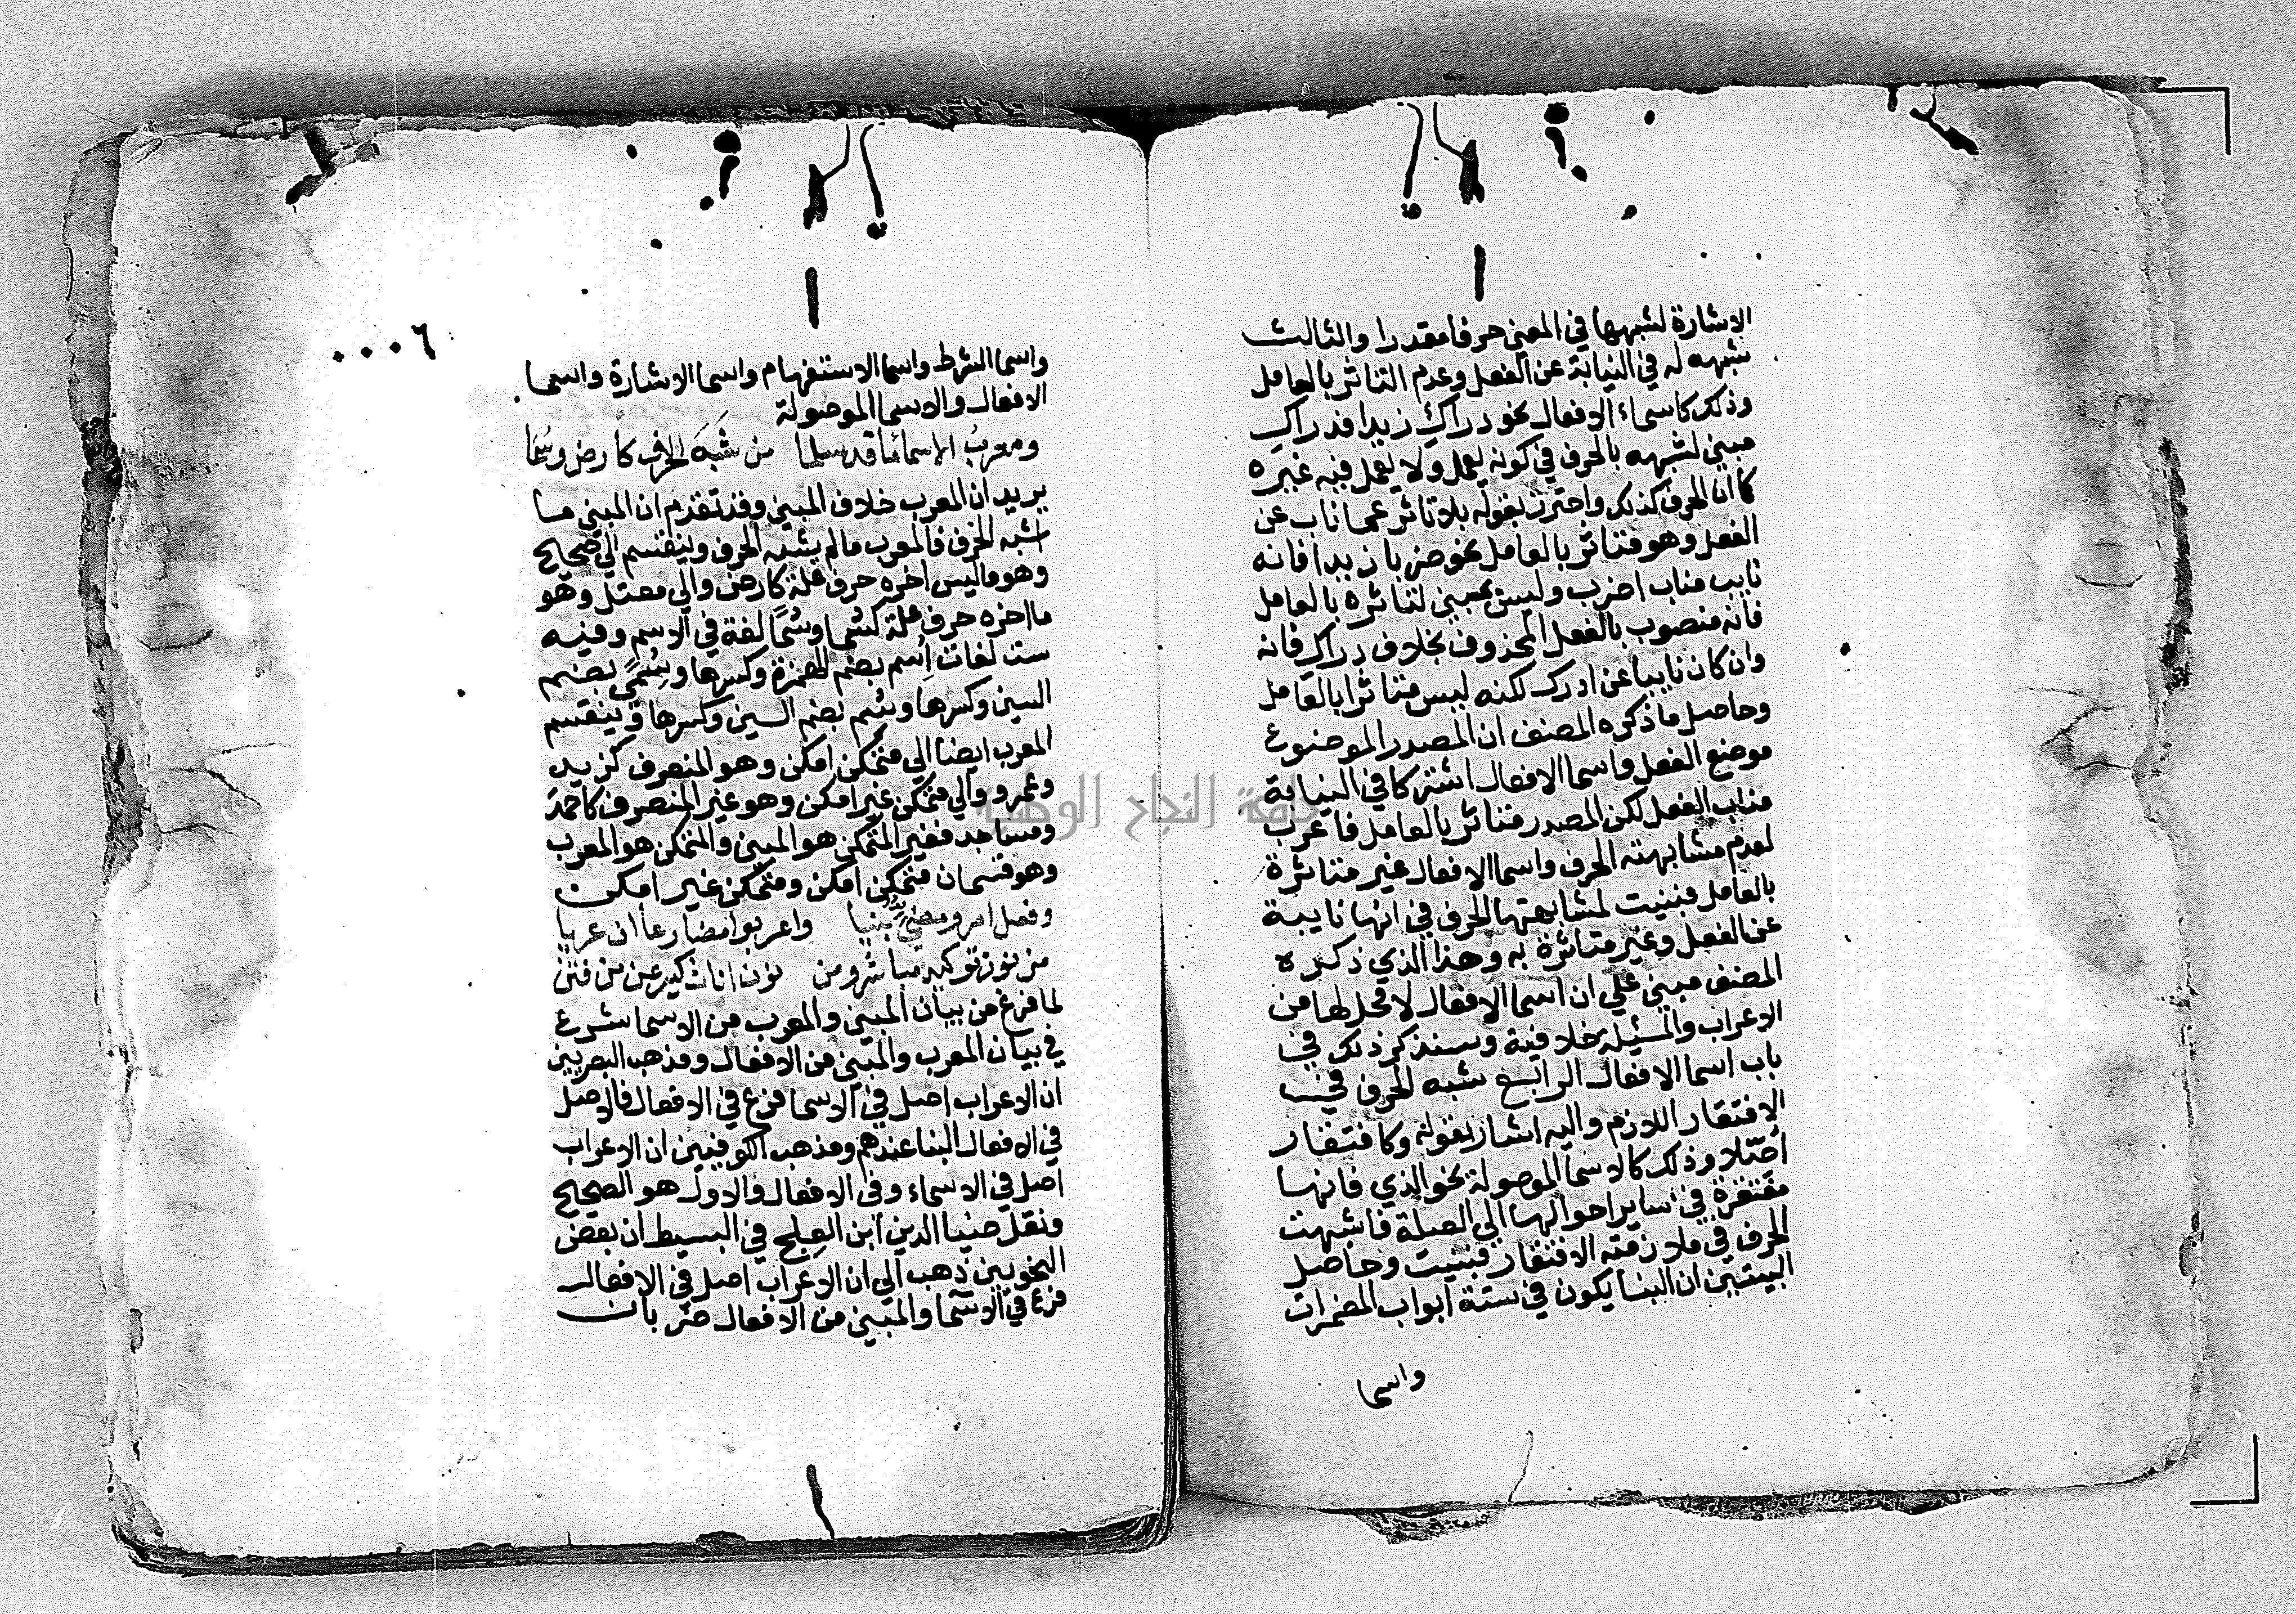 الاشارة لشبهها في المعني حرفا مقدرا والثالث
شبهه له في النيابة عن الفعل وعدم التاثر بالعامل
وذلك كاسماء الافعال نحو دراك زيدا فدراك
مبني لشبهه بالحرف في كونه يعمل ولا يعمل فيه غيره
كما ان الحرف كذلك واحترز بقوله بلا تاثر عما ناب عن
الفعل وهو متاثر بالعامل نحو ضربا زيدا فانه
نايب مناب اضرب وليس بمبني لتاثره بالعامل
فانه منصوب بالفعل المحذوف بخلاف دراك فانه
وان كان نايبا عن ادرك لكنه ليس متاثرا بالعامل
وحاصل ما ذكره المصنف ان المصدر الموضوع
موضع الفعل واسما الافعال اشتركا في النيابة
مناب الفعل لكن المصدر متاثر بالعامل فاعرب
لعدم مشابهته الحرف واسما الافعال غير متاثرة
بالعامل فبنيت لمشابهتها الحرف في انها نايبة
عن الفعل وغير متاثرة به وهذا الذي ذكره
المصنف مبني علي ان اسما الافعال لا محل لها من
الاعراب والمسئلة خلافية وسنذكر ذلك في
باب اسما الافعال الرابع شبه الحرف في
الافتقار اللازم واليه اشار بقوله وكافتقار
اصلا وذلك كالاسما الموصولة نحو الذي فانها
مفتقرة في ساير احوالها الي الصلة فاشبهت
الحرف في ملازمته الافتقار فبنيت وحاصل
البيتين ان البنا يكون في ستة ابواب المضمرات
واسما
٠٠٠٦
واسما الشرط واسما الاستفهام واسما الاشارة واسما
الافعال والاسما الموصولة
ومعرب الاسما ما قد سلما من شبه الحرف كارض وسما
يريد ان المعرب خلاف المبني وقد تقدم ان المبني ما
اشبه الحرف فالمعرب ما لم يشبه الحرف وينقسم الي صحيح
وهو ما ليس اخره حرف علة كارض والي معتل وهو
ما اخره حرف علة كسما وسُمًا لغة في الاسم وفيه
ست لغات اُسم بضم الهمزة وكسرها وسُمًي بضم
السين وكسرها وسُم بضم السين وكسرها وينقسم
المعرب ايضا الي متمكن امكن وهو المنصرف كزيد
وعمرو والي متمكن غير امكن وهو غير المنصرف كاحمد
ومساجد فغير المتمكن هو المبني والمتمكن هو المعرب
وهو قسمان متمكن امكن ومتمكن غير امكن
وفعل امر ومضي بنيا واعربوا مضارعا ان عريا
من نون توكيد مباشر ومن نون اناث كيرعن من فتن
لما فرغ من بيان المبني والمعرب من الاسما شرع
في بيان المعرب والمبني من الافعال ومذهب البصريين
ان الاعراب اصل في الاسما فرع في الافعال فالاصل
في الافعال البنا عندهم ومذهب الكوفيين ان الاعراب
اصل في الاسماء وفي الافعال والاول هو الصحيح
ونقل ضيا الدين ابن العلج في البسيط ان بعض
النحويين ذهب الي ان الاعراب اصل في الافعال
فرع في الاسما والمبني من الافعال ضربان
جامعة النجاح الوطنية